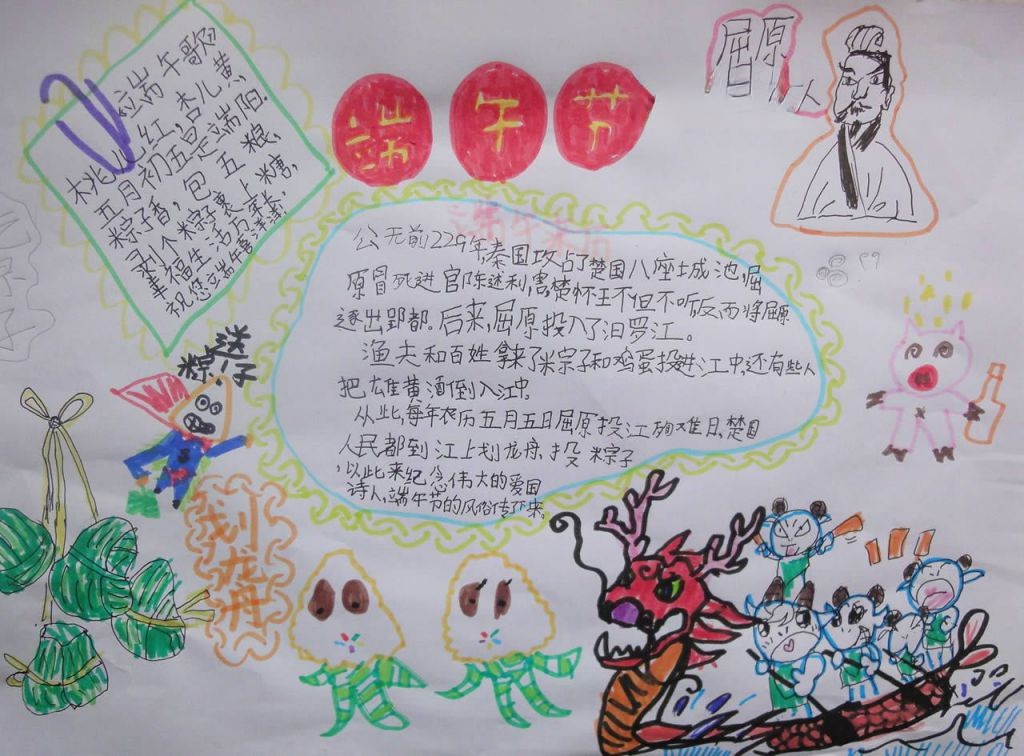 端午节
屈原
端午歌
桃儿红,杏儿黄,
五月初五是端阳。
粽子香,包五粮,
剥个粽子裹上糖,
幸福生活万年长。
祝您端午喜洋洋。
公元前229年,秦国攻占了楚国八座城池屈
原冒死进官陈述利害,楚怀王不但不听反而将屈原
逐出郢都。后来,屈原投入了汨罗江。
渔夫和百姓拿来了米宗子和鸡蛋投进江中,还有些人
把雄黄酒倒入江中。
从此,每年农历五月五日屈原投江殉难日,楚国
人民都到江上划龙舟,投粽子
,以此来纪念伟大的爱国
诗人,端午节的风俗传下来。
送
粽子
划龙舟